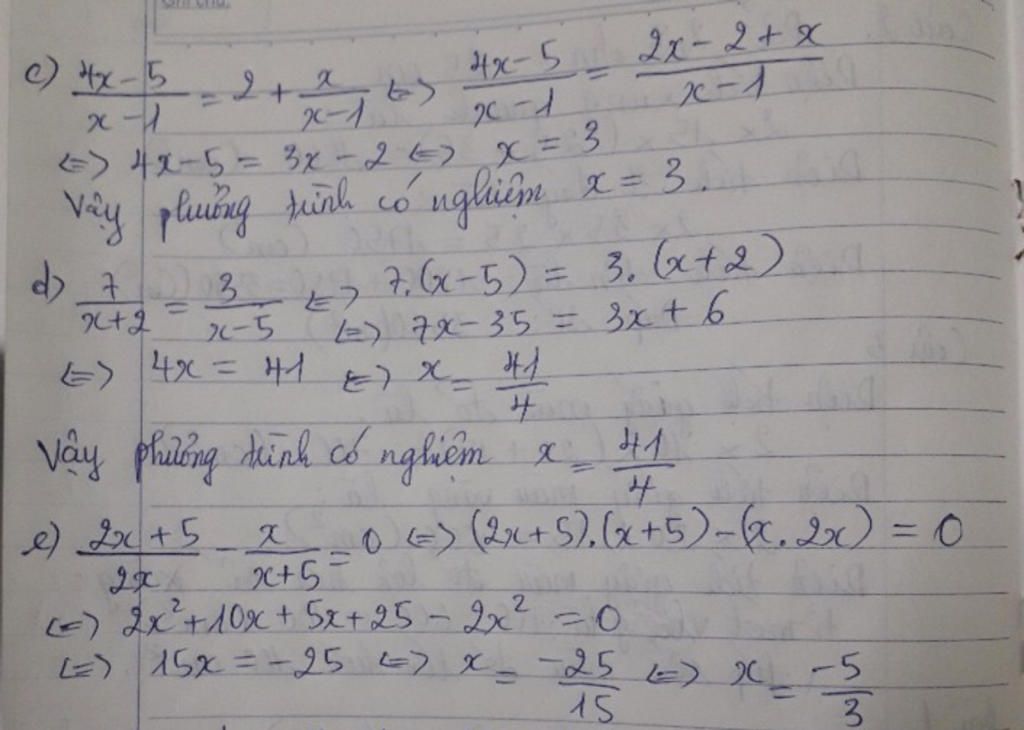 c) (4x-5)/(x-1) = 2 + x/(x-1) <=> (4x-5)/(x-1) = (2x-2+x)/(x-1)
<=> 4x-5 = 3x-2 <=> x = 3
Vậy phương trình có nghiệm x = 3.
d) 7/(x+2) = 3/(x-5) <=> 7.(x-5) = 3.(x+2)
<=> 7x-35 = 3x+6
<=> 4x = 41 <=> x = 41/4
Vậy phương trình có nghiệm x = 41/4
e) (2x+5)/(2x) - x/(x+5) = 0 <=> (2x+5).(x+5)-(x.2x) = 0
<=> 2x²+10x+5x+25-2x² = 0
<=> 15x = -25 <=> x = -25/15 <=> x = -5/3